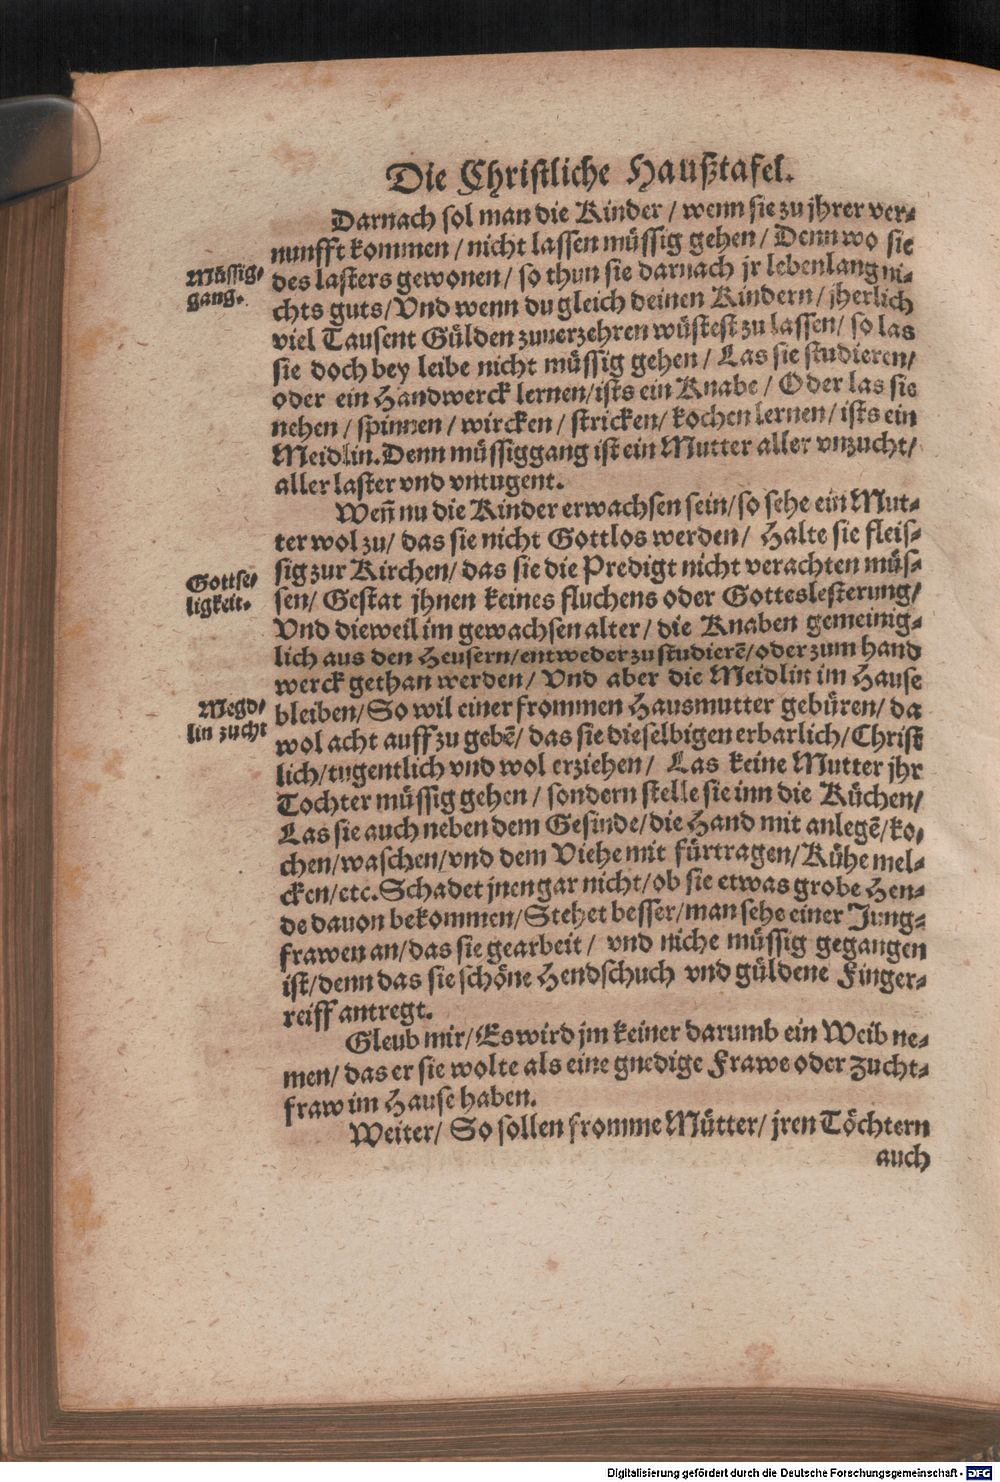 Die Christliche Haußtafel.
Darnach sol man die Kinder / wenn sie zu jhrer ver-
nunfft kommen / nicht lassen müssig gehen / Denn wo sie
Müssig-
gang.
des lasters gewonen / so thun sie darnach jr lebenlang ni-
chts guts / Vnd wenn du gleich deinen Kindern / jherlich
viel Tausent Gülden zuuerzehren wüstest zu lassen / so las
sie doch bey leibe nicht müssig gehen / Las sie studieren /
oder ein Handwerck lernen / ists ein Knabe / Oder las sie
nehen / spinnen / wircken / stricken / kochen lernen / ists ein
Meidlin. Denn müssiggang ist ein Mutter aller vnzucht /
aller laster vnd vntugent.
Weñ nu die Kinder erwachsen sein / so sehe ein Mut-
ter wol zu / das sie nicht Gottlos werden / Halte sie fleis-
sig zur Kirchen / das sie die Predigt nicht verachten müs-
Gottse-
ligkeit.
sen / Gestat jhnen keines fluchens oder Gotteslesterung /
Vnd dieweil im gewachsen alter / die Knaben gemeinig-
lich aus den Heusern / entweder zu studierē / oder zum hand
werck gethan werden / Vnd aber die Meidlin im Hause
Megd-
lin zucht
bleiben / So wil einer frommen Hausmutter gebüren / da
wol acht auff zu gebē / das sie dieselbigen erbarlich / Christ
lich / tugentlich vnd wol erziehen / Las keine Mutter jhr
Tochter müssig gehen / sondern stelle sie inn die Küchen /
Las sie auch neben dem Gesinde / die Hand mit anlegē / ko-
chen / waschen / vnd dem Viehe mit fürtragen / Kühe mel-
cken / etc. Schadet jnen gar nicht / ob sie etwas grobe Hen-
de dauon bekommen / Stehet besser / man sehe einer Jung-
frawen an / das sie gearbeit / vnd niche müssig gegangen
ist / denn das sie schöne Hendschuch vnd güldene Finger-
reiff antregt.
Gleub mir / Es wird jm keiner darumb ein Weib ne-
men / das er sie wolte als eine gnedige Frawe oder Zucht-
fraw im Hause haben.
Weiter / So sollen fromme Mütter / jren Töchtern
auch
Digitalisierung gefördert durch die Deutsche Forschungsgemeinschaft - DFG